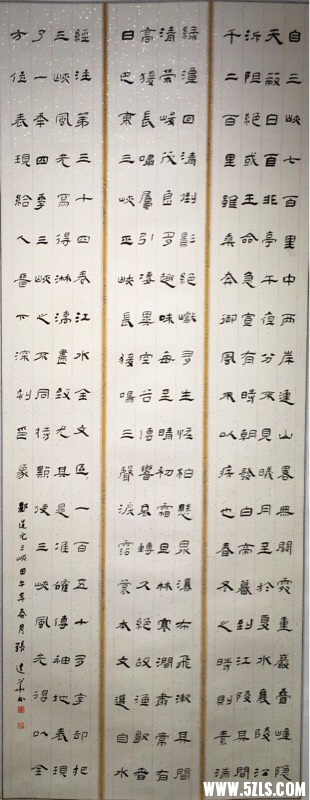 自三峽七百里中兩岸連山畧無闕處重巖疊嶂隱
天蔽日自非亭午夜分不見曦月至於夏水襄陵沿
泝阻絕或王命急宣有時朝發白帝暮到江陵其間
千二百里雖乘奔御風不以疾也春冬之時則素湍
綠潭回清倒影絕巘多生怪柏懸泉瀑布飛漱其間
清榮峻茂良多趣味每至晴初霜旦林寒澗肅常有
高猨長嘯屬引淒異空谷傳響哀轉久絕故漁歌者
曰巴東三峽巫峽長猨鳴三聲淚霑裳本文選自水
經注第三十四卷江水全文區一百五十多字却把
三峽風光寫得淋漓盡致尤其是准確傳神地表現
了一年四季三峽之不同特點使三峽風光得以全
方位表現給人留下深刻印象 酈道元三峽甲午年春月張建華書
WWW.5ZLS.COM